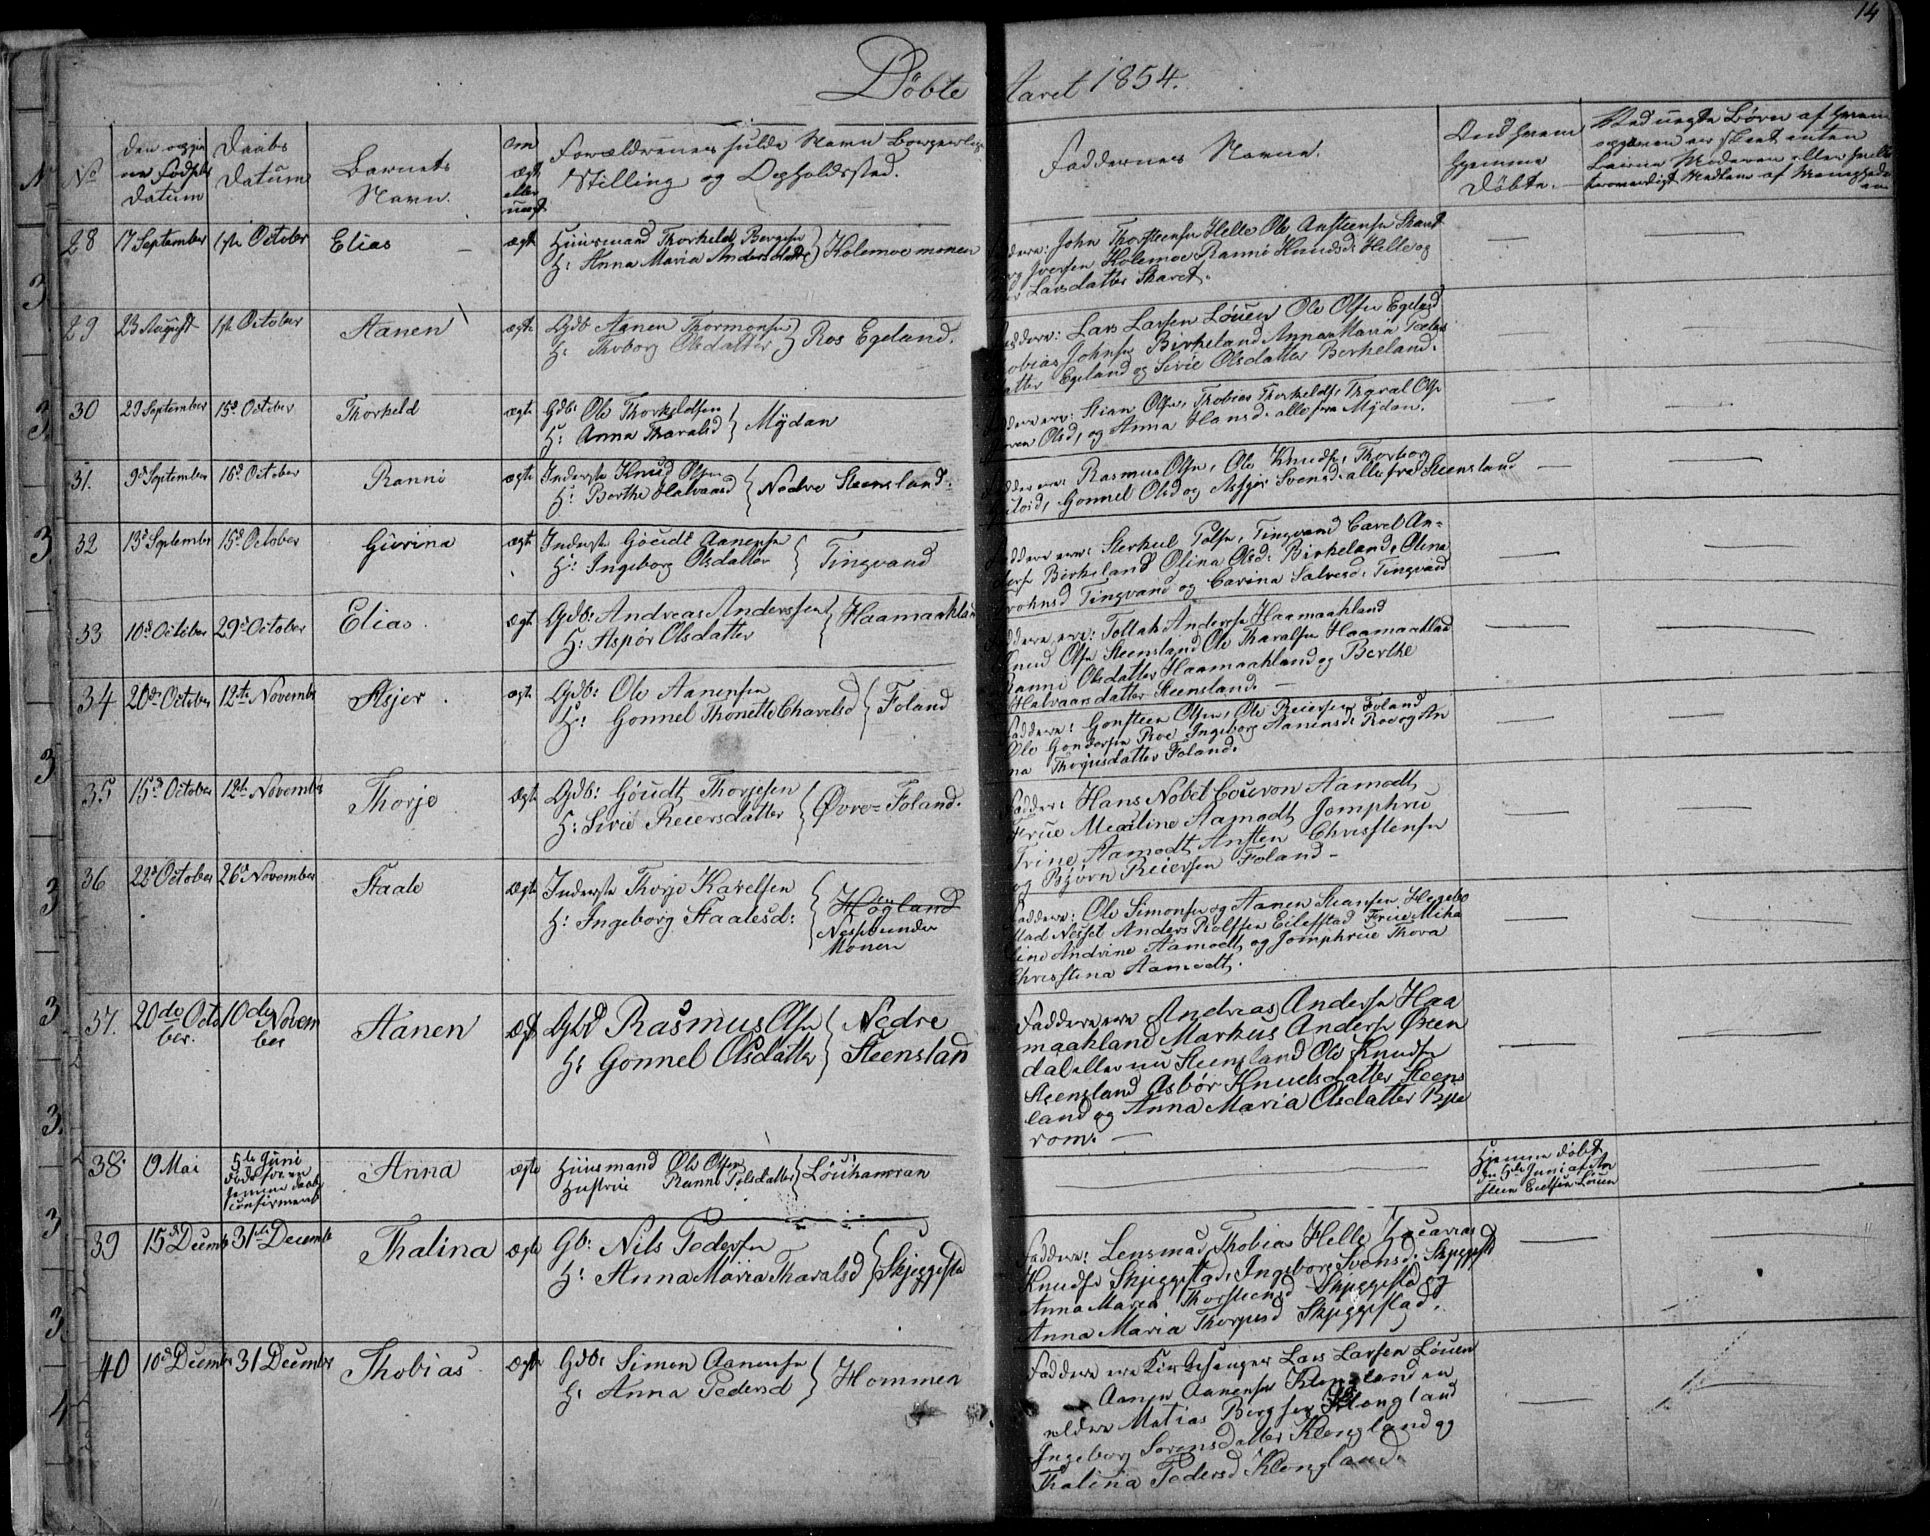 14
Döbte Aaret 1854.
No
Daabs
Datum
Barnets
Navn.
om
ægte
eller
uægt
Forældrenes fulde Navn Borgerlige
Stilling og Opholdssted.
Faddernes Navne.
hjemme
Döbte.
28 17 September 1ste October Elias ægte Huusmand Thorkeld Bergesen
H: Anna Maria Andersdatter } Kolemoe monen
John Thorsteensen Helle Ole Ansteensen Skaret
Iversen Kolemoe Rannö Knudsd: Helle og
Larsdatter Skaret.
29 23 August 1ste October Aanen ægte Gdb Aanen Thormonsen
H: Thoborg Olsdatter } Ros Egeland.
Lars Larsen Löuen Ole Olsen Egeland
Tobias Johnsen Birkeland Anna Maria
Egeland og Sirie Olsdatter Berkeland.
30 29 September 15d October Thorkeld ægte Gdb: Ole Thorkeldsen
H: Anna Tharalsd } Mÿdan
Stian Olsen, Thobias Thorkelds, Tharal Olsen
Olsd, og Anna Hansd. alle fra Mÿdan.
31. 9d September 15d October Rannö ægte Inderste Knud Olsen
H: Berthe Halvaarsd } Nedre Steensland.
Rasmus Olsen, Ole Knudsen, Thorborg
Gonnel Olsd og Asgjer Svensd. alle fra Steensland
32 13d September 15d October Gurina ægte Inderste Goudt Aanensen
H: Ingeborg Olsdatter } Tingvand
Sterkul Tolsen, Tingvand Carel An=
dersen Birkeland Olina Olsd: Birkeland, Olena
Johnsd Tingvand og Carina Salvesd: Tingvand
33 10d October 29d October Elias. ægte Gdb: Andreas Anderssen
H: Aspör Olsdatter } Haamaakland
Tollak Andersen Haamaakland
Knud Olsen Steensland Ole Tharalsen Haamaakland
Ranni Olsdatter Haamaakland og Berthe
Halvaarsdatter Steensland.
34 20de October 12te Novembr Asjer. ægte Gdb: Ole Aanensen
H: Gonnel Thonette Chavelsd } Foland
Faddere: Gonsteen Olsen, Ole Reiersen Foland
Ole Gondersen Roe Ingeborg Aanensd: Roe og An
na Thorjusdatter Foland.
35 15d October 12te November Thorje ægte Gdb: Goudt Thorjesen
H: Sirie Reiersdatter } Övre=Foland.
Fadder: Hans Nobel Couron Aamodt
Frue Mealine Aamodt Jomphru
Trine Aamodt Ansten Christensen
og Björn Reiersen Foland
36 22d October 26d November Staale ægte Inderste Thorje Karelsen
H: Ingeborg Staalesd: } Högland
Nesset under
Monen
Faddere: Ole Simonsen og Aanen Stiansen Hegebo
stad Nesset Anders Rolfsen Eilefstad Frue Mika
line Andrine Aamodt og Jomphrue Thora
Christina Aamodt.
37. 20de Octo
ber. 10de Novem
ber Aanen ægt Gbd Rasmus Olsen
H: Gonnel Olsdatter } Nedre
Steensland
Faddere ere Andreas Andersen Haa
maakland Markus Andersen Öien
dal eller nu Steensland Ole Knudsen
Steensland Asbör Knudsdatter Steens
land og Anna Maria Olsdatter Bje
rom.
38. 9 Mai 5te Juni
hjemme daab
confirmeret Anna ægte Huusmand Ole Olsen
Hustrue Ranne Tolsdatter } Löuhamran
Hjemme döbt
den 5te Juni af An
sten Eielsen Löuen
39 15d Decembr 31te Decembr Thalina ægte Gb: Nils Pedersen
H: Anna Maria Tharalsd } Skjeggestad
Faddere: Lensmad Thobias Helle Zacarias
Knudsen Skjeggestad, Ingeborg Svensd: Skjeggestad
Anna Maria Thorsteensd Skjeggestad og
Anna Maria Thorjusd Skjeggestad.
40 10d Decembr 31 Decembr Thobias ægte Gdb: Simon Aanensen
H: Anna Pedersd } Hommen
Faddere ere Kirkesanger Lars Larsen Löuen
Aanen Aanensen Klongland en
eldre Matias Bergsen Klongland
Ingeborg Sörensdatter Klongland og
Thalina Pedersd Klongland.